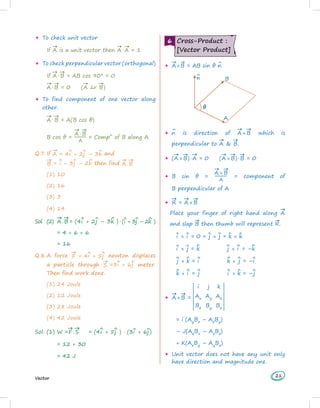 + To check unit vector
If A⃗ is a unit vector then A⃗·A⃗ = 1
+ To check perpendicular vector (orthogonal)
If A⃗·B⃗ = AB cos 90° = 0
A⃗·B⃗ = 0 (A⃗ ⊥r B⃗)
+ To find component of one vector along other.
A⃗·B⃗ = A(B cos θ)
B cos θ = A⃗·B⃗ / A = Compⁿ of B along A
Q.7 If A⃗ = 4î – 2ĵ – 3k̂ and
B⃗ = î – 3ĵ – 2k̂ then find A⃗·B⃗
(1) 10
(2) 16
(3) 3
(4) 24
Sol. (2) A⃗·B⃗ = (4î + 2ĵ – 3k̂)·(î + 3ĵ – 2k̂)
= 4 + 6 + 6
= 16
Q.8 A force F⃗ = 4î + 5ĵ newton displaces
a particle through S⃗ = 3î + 6ĵ meter.
Then find work done.
(1) 24 Joule
(2) 12 Joule
(3) 28 Joule
(4) 42 Joule
Sol. (1) W = F⃗·S⃗ = (4î + 5ĵ)·(3î + 6ĵ)
= 12 + 30
= 42 J
Vector
6 Cross-Product :
[Vector Product]
+ A⃗×B⃗ = AB sin θ n̂
n̂
B
θ
A
+ n̂ is direction of A⃗×B⃗ which is
perpendicular to A⃗ & B⃗.
+ (A⃗×B⃗)·A⃗ = 0 (A⃗×B⃗)·B⃗ = 0
+ B sin θ = A⃗×B⃗ / A = component of
B perpendicular of A
+ R⃗ = A⃗×B⃗
Place your finger of right hand along A⃗
and slap B⃗ then thumb will represent R⃗.
î × î = 0 = ĵ × ĵ = k̂ × k̂
î × ĵ = k̂ ĵ × î = –k̂
ĵ × k̂ = î k̂ × ĵ = –î
k̂ × î = ĵ î × k̂ = –ĵ
+ A⃗×B⃗ = | i j k |
| Ax Ay Az |
| Bx By Bz |
= î (AyBz – AzBy)
– J(AxBz – AzBx)
+ K(AxBy – AyBx)
+ Unit vector does not have any unit only
have direction and magnitude one.
21